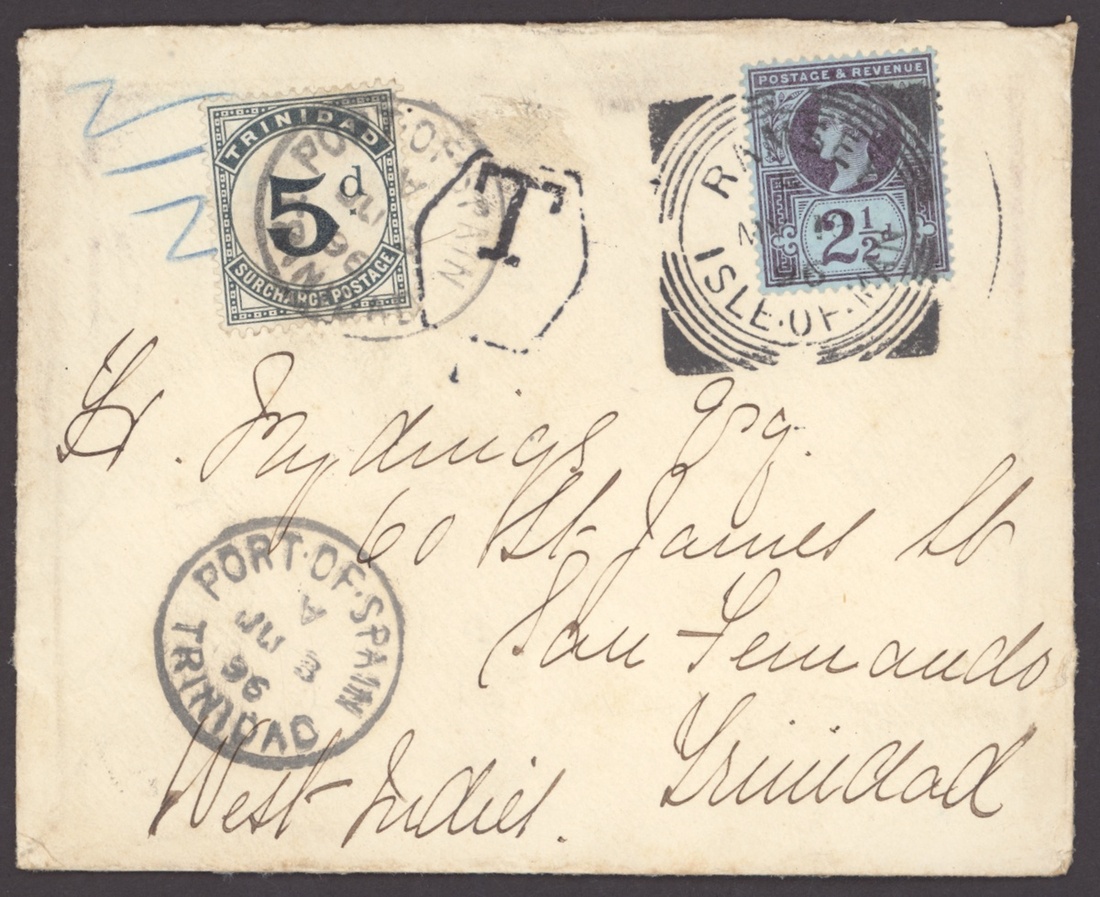 TRINIDAD
5d
SURCHARGE POSTAGE
PORT·OF·SPAIN
T
POSTAGE & REVENUE
2½d
ISLE·OF·
Esq.
60 St James St
San Fernando
Trinidad
West Indies.
PORT·OF·SPAIN
A
JU
96
TRINIDAD